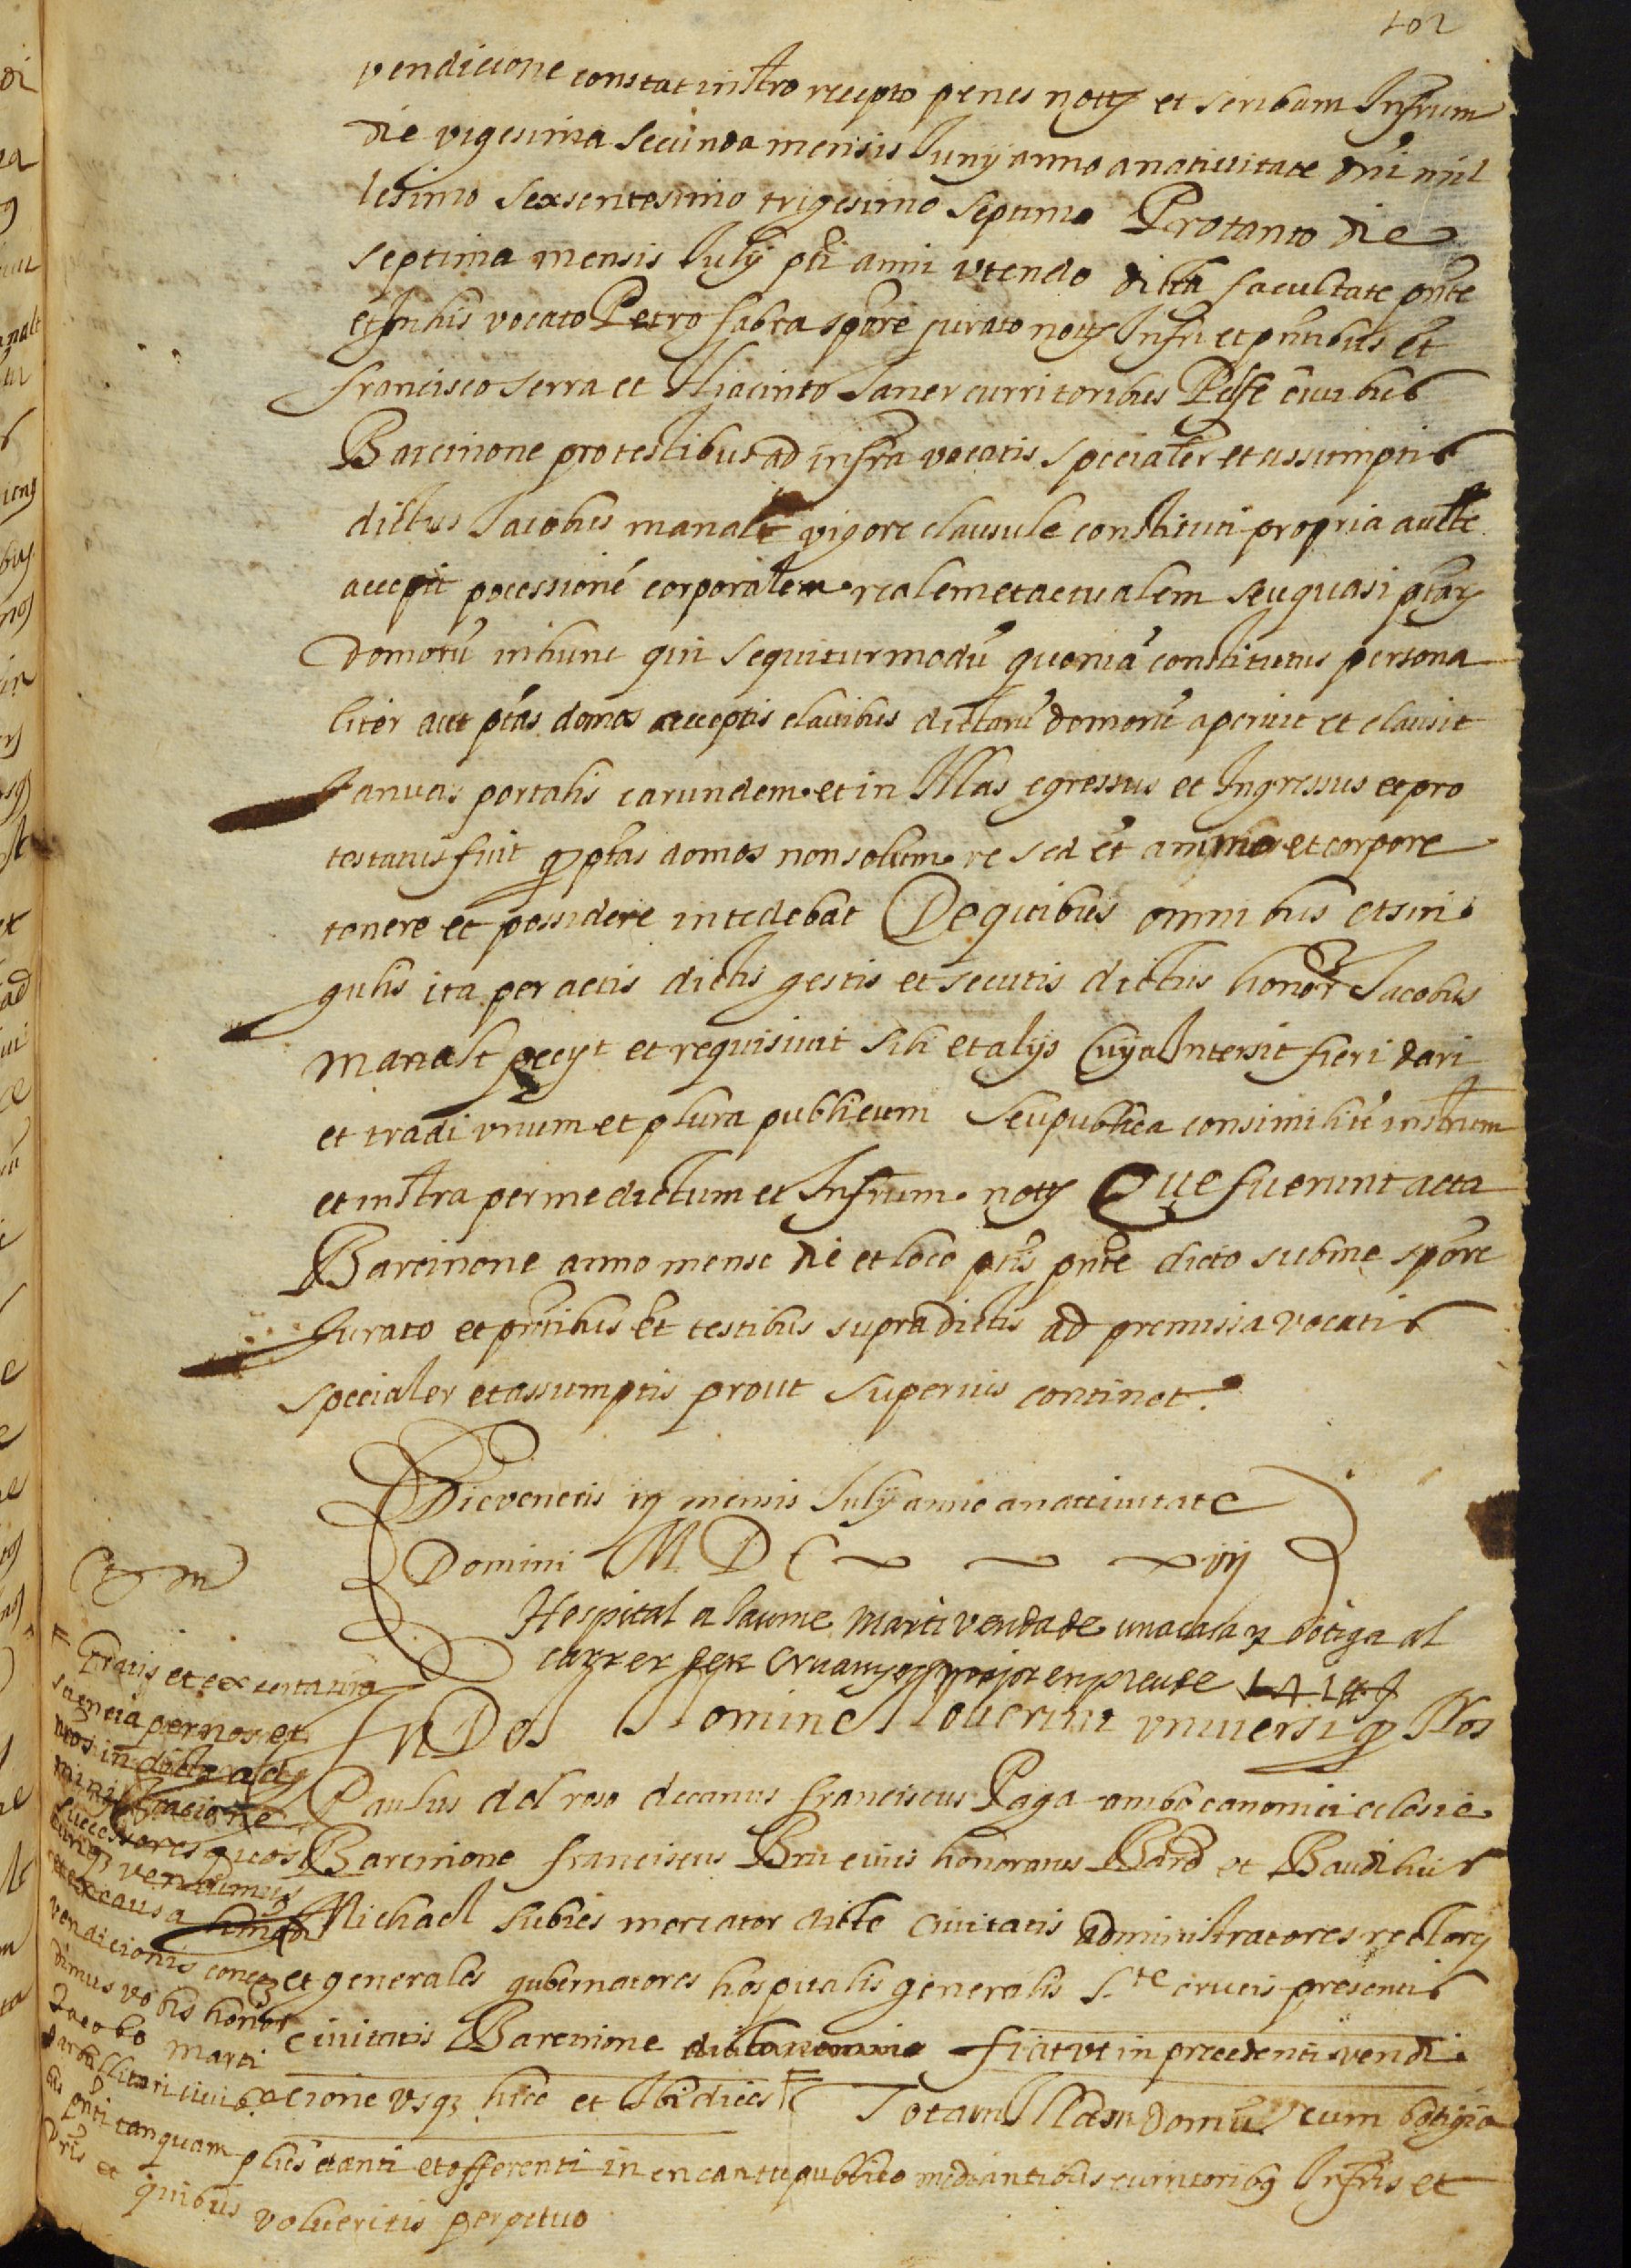 102
vendicione constat instro recepto penes nott et scribam Infrum
die vigesima secunda mensis Iunij anno anativitate dni mil
lesimo sexsentesimo trigesimo septimo Protanto die
septima mensis Iulij pti anni vtendo dicta facultate pnte
et Inhis vocato Petro fabra spore jurato noty Infri et pntibus et
francisco serra et Hjacinto Janer curritoribus civibus
Barcinone protestibus ad infra vocatis specialer et assumptis
dictus Iacobus manalt vigore clausule constituti propria aucte
accepit pocessioné corporalem realem et actualem seu quasi ptar
domorú inhunc qui sequitur modú quoniá constitutus persona
liter ant ptás domos acceptis clavibus dictarú domorú aperuit et clausit
Januas portalis earundem et in Illas egressus et Ingressus et pro
testatus fuit q ptas domos non solum re sed et animo et corpore
tenere et possidere intedebat De quibus omnibus et sin
gulis ita per actis dictis gestis et secutis dictus honor Iacobus
manalt pecyt et requisivit sibi et alijs Cuya Intersit fieri dari
et tradi vnum et plura publicum Seu publica consimilit instrum
et instra per me dictum et Infrum noty Que fuerunt acta
Barcinone anno mense die et loco ptis pnte dicto subme spore
Jurato et pntibus et testibus supradictis ad premissa vocatis
specialer et assumptis prout superius continet.
Die veneris mensis Iulij anno anativitate
Domini M D C
Hospital a Jaume Marti venda de una casa y botiga al
carrer
In Dei Nomine Noverint vniversi q Nos
Paulus del roso decanus franciscus Paga ambo canonici eclesie
Barcinone franciscus Bru civis honoratus Barc et Baudilius
Michael subies mercator dicte Civitatis administratores rectory
et generales gubernatores hospitalis generalis S.te crucis presentis
Civitatis Barcinone dicto nomine fiat vt in precedenti vendi
cione vsq hice et Ibi dices Totam Illam domú cum botigia
Gratis et ex certa
sciencia per nos et
nros in dicta ad
ministracione
successores quos
cunq vendimus
et ex causa humoi
vendicionis conce
dimus vobis honor
Jacobo Marti
pnti tanquam plus danti et offerenti in encantu publico mediantibus curritoribq Infris et
quibus volueritis perpetuo